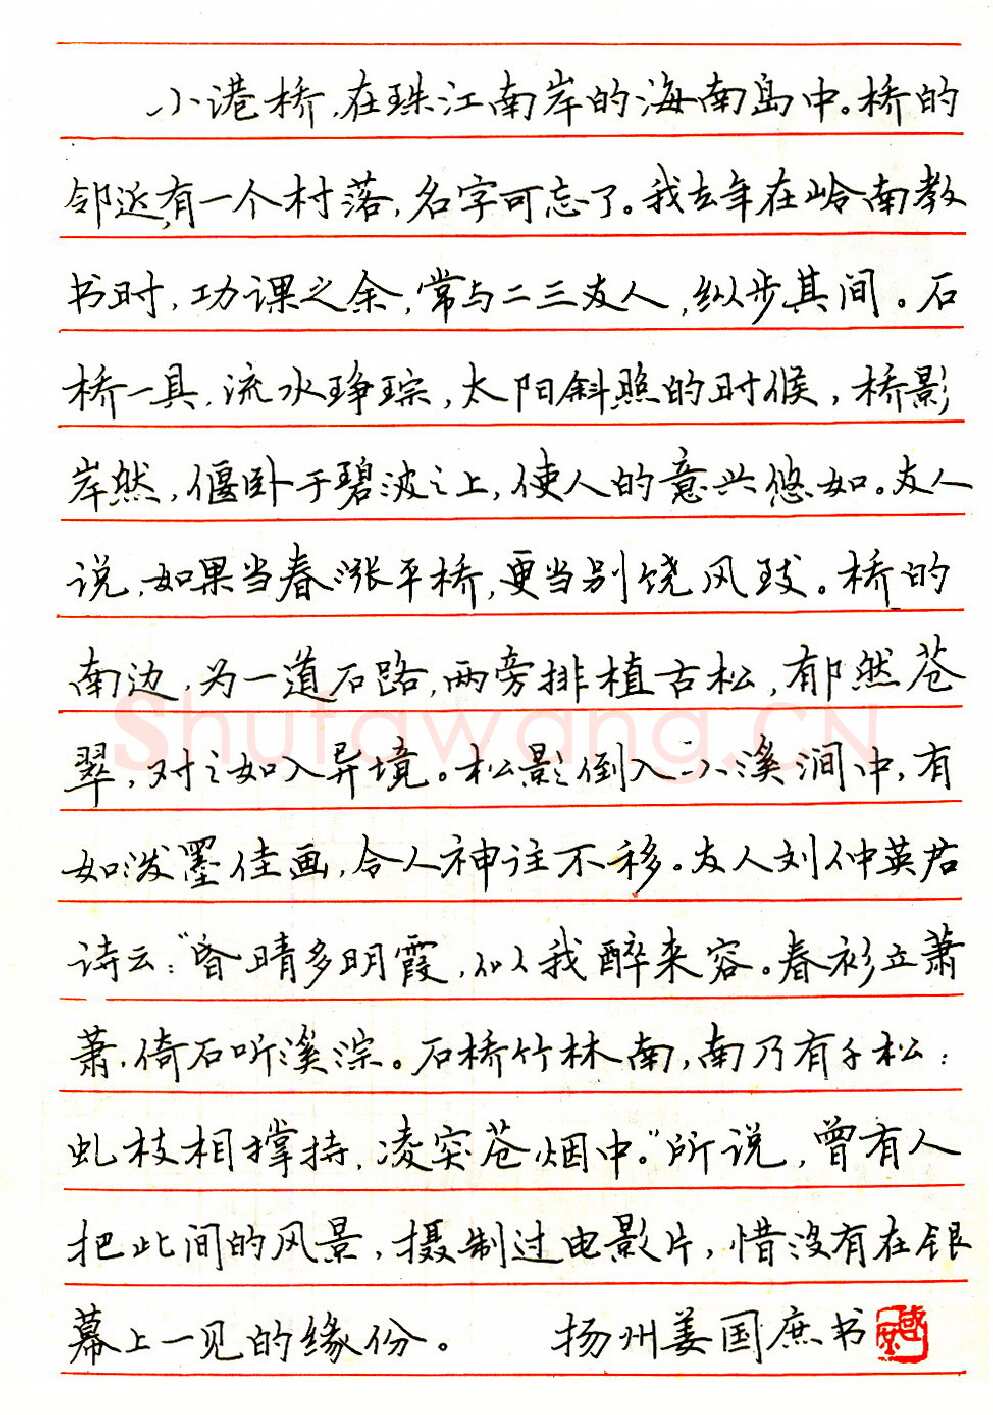 小港桥，在珠江南岸的海南岛中。桥的
邻近，有一个村落，名字可忘了。我去年在岭南教
书时，功课之余，常与二三友人，纵步其间。石
桥一具，流水琤琮，太阳斜照的时候，桥影
岸然，偃卧于碧波之上，使人的意兴悠如。友人
说，如果当春涨平桥，更当别饶风致。桥的
南边，为一道石路，两旁排植古松，郁然苍
翠，对之如入异境。松影倒入小溪涧中，有
如泼墨佳画，令人神注不移。友人刘仲英君
诗云："昏晴多明霞，似我醉来容。春衫立萧
萧，倚石听溪淙。石桥竹林南，南乃有子松：
虬枝相撑持，凌突苍烟中。"所说，曾有人
把此间的风景，摄制过电影片，惜没有在银
幕上一见的缘份。 扬州姜国庶书
Shufawang.CN